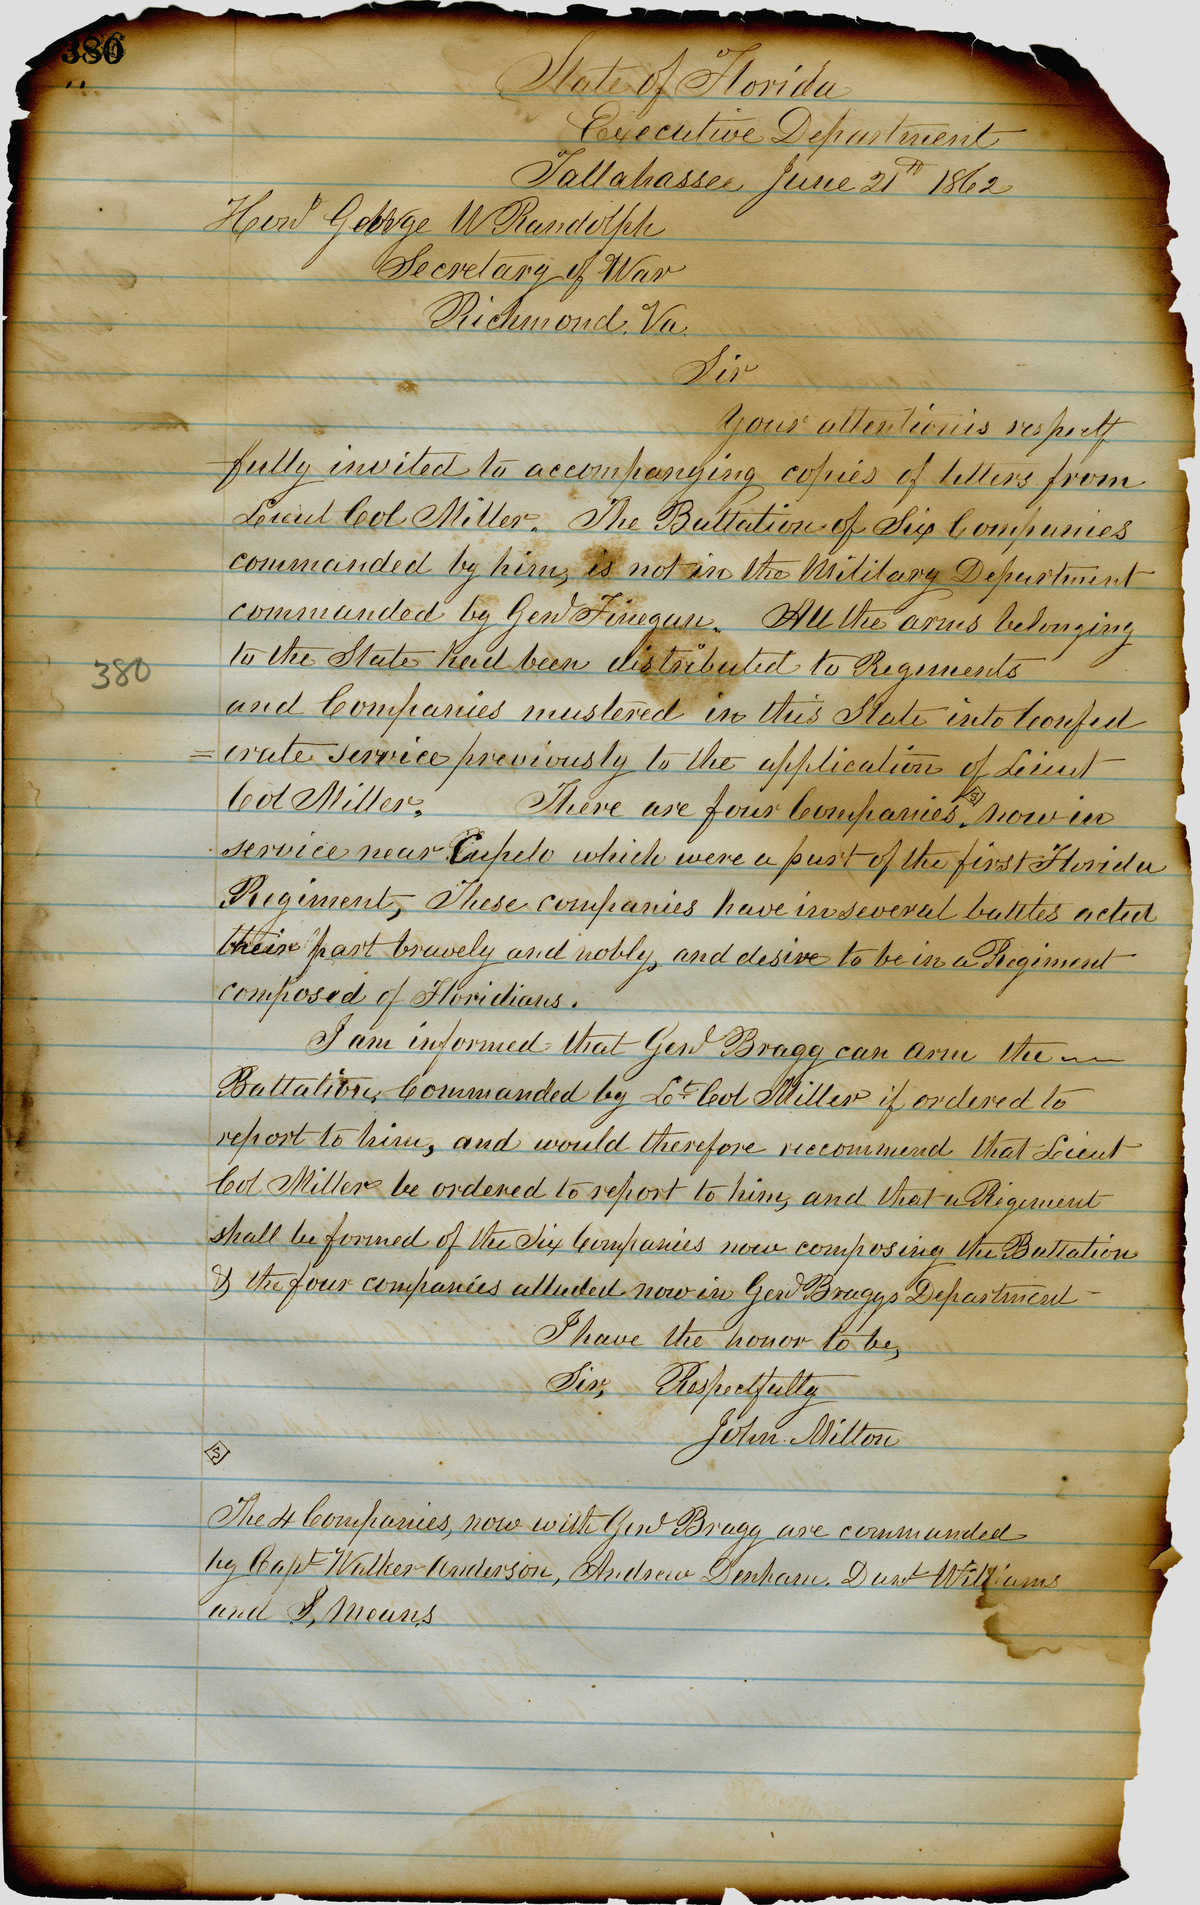 380
State of Florida
Executive Department
Tallahassee June 21st 1862
Honl George W Randolph
Secretary of War
Richmond. Va.
Sir
Your attention is respect
fully invited to accompanying copies of letters from
Lieut Col Miller. The Battalion of Six Companies
commanded by him, is not in the Military Department
commanded by Genl Finegan. All the arms belonging
to the State had been distributed to Regiments
380
and Companies mustered in this State into Confed
=erate service previously to the application of Lieut
Col Miller. There are four Companies [S] now in
service near Tupelo which were a part of the first Florida
Regiment, These companies have in several battles acted
their part bravely and nobly, and desire to be in a Regiment
composed of Floridians.
I am informed that Genl Bragg can arm the
Battalion, Commanded by Lt Col Miller if ordered to
report to him, and would therefore reccommend that Lieut
Col Miller be ordered to report to him, and that a Regiment
shall be formed of the Six Companies now composing the Battalion
& the four companies alluded now in Genl Braggs Department
I have the honor to be,
Sir, Respectfully
John Milton
[S]
The 4 Companies, now with Genl Bragg are commanded
by Capt Walker Anderson, Andrew Denham. Danl Williams
and S, Means